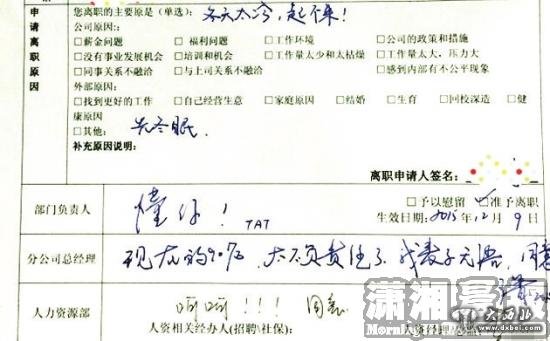 申请离职原因
您离职的主要原是(单选): 冬天太冷,起不来!
公司原因:
□薪金问题 □福利问题 □工作环境 □公司的政策和措施
□没有事业发展机会 □培训和机会 □工作量太少和太枯燥 □工作量太大,压力大
□同事关系不融洽 □与上司关系不融洽 □感到内部有不公平现象
外部原因:
□找到更好的工作 □自己经营生意 □家庭原因 □结婚 □生育 □回校深造 □健
康原因
□其他: 先冬眠.
补充原因说明:
离职申请人签名:
部门负责人 懂你! TAT
□予以慰留 准予离职
生效日期: 2015年12月9日
分公司总经理 现在的90后,太不负责任了 我表示无语,同意
人力资源部 呵呵!!! 同意
人资相关经办人(招聘\社保): 人资经理
潇湘晨报
大西北
www.dxbei.com